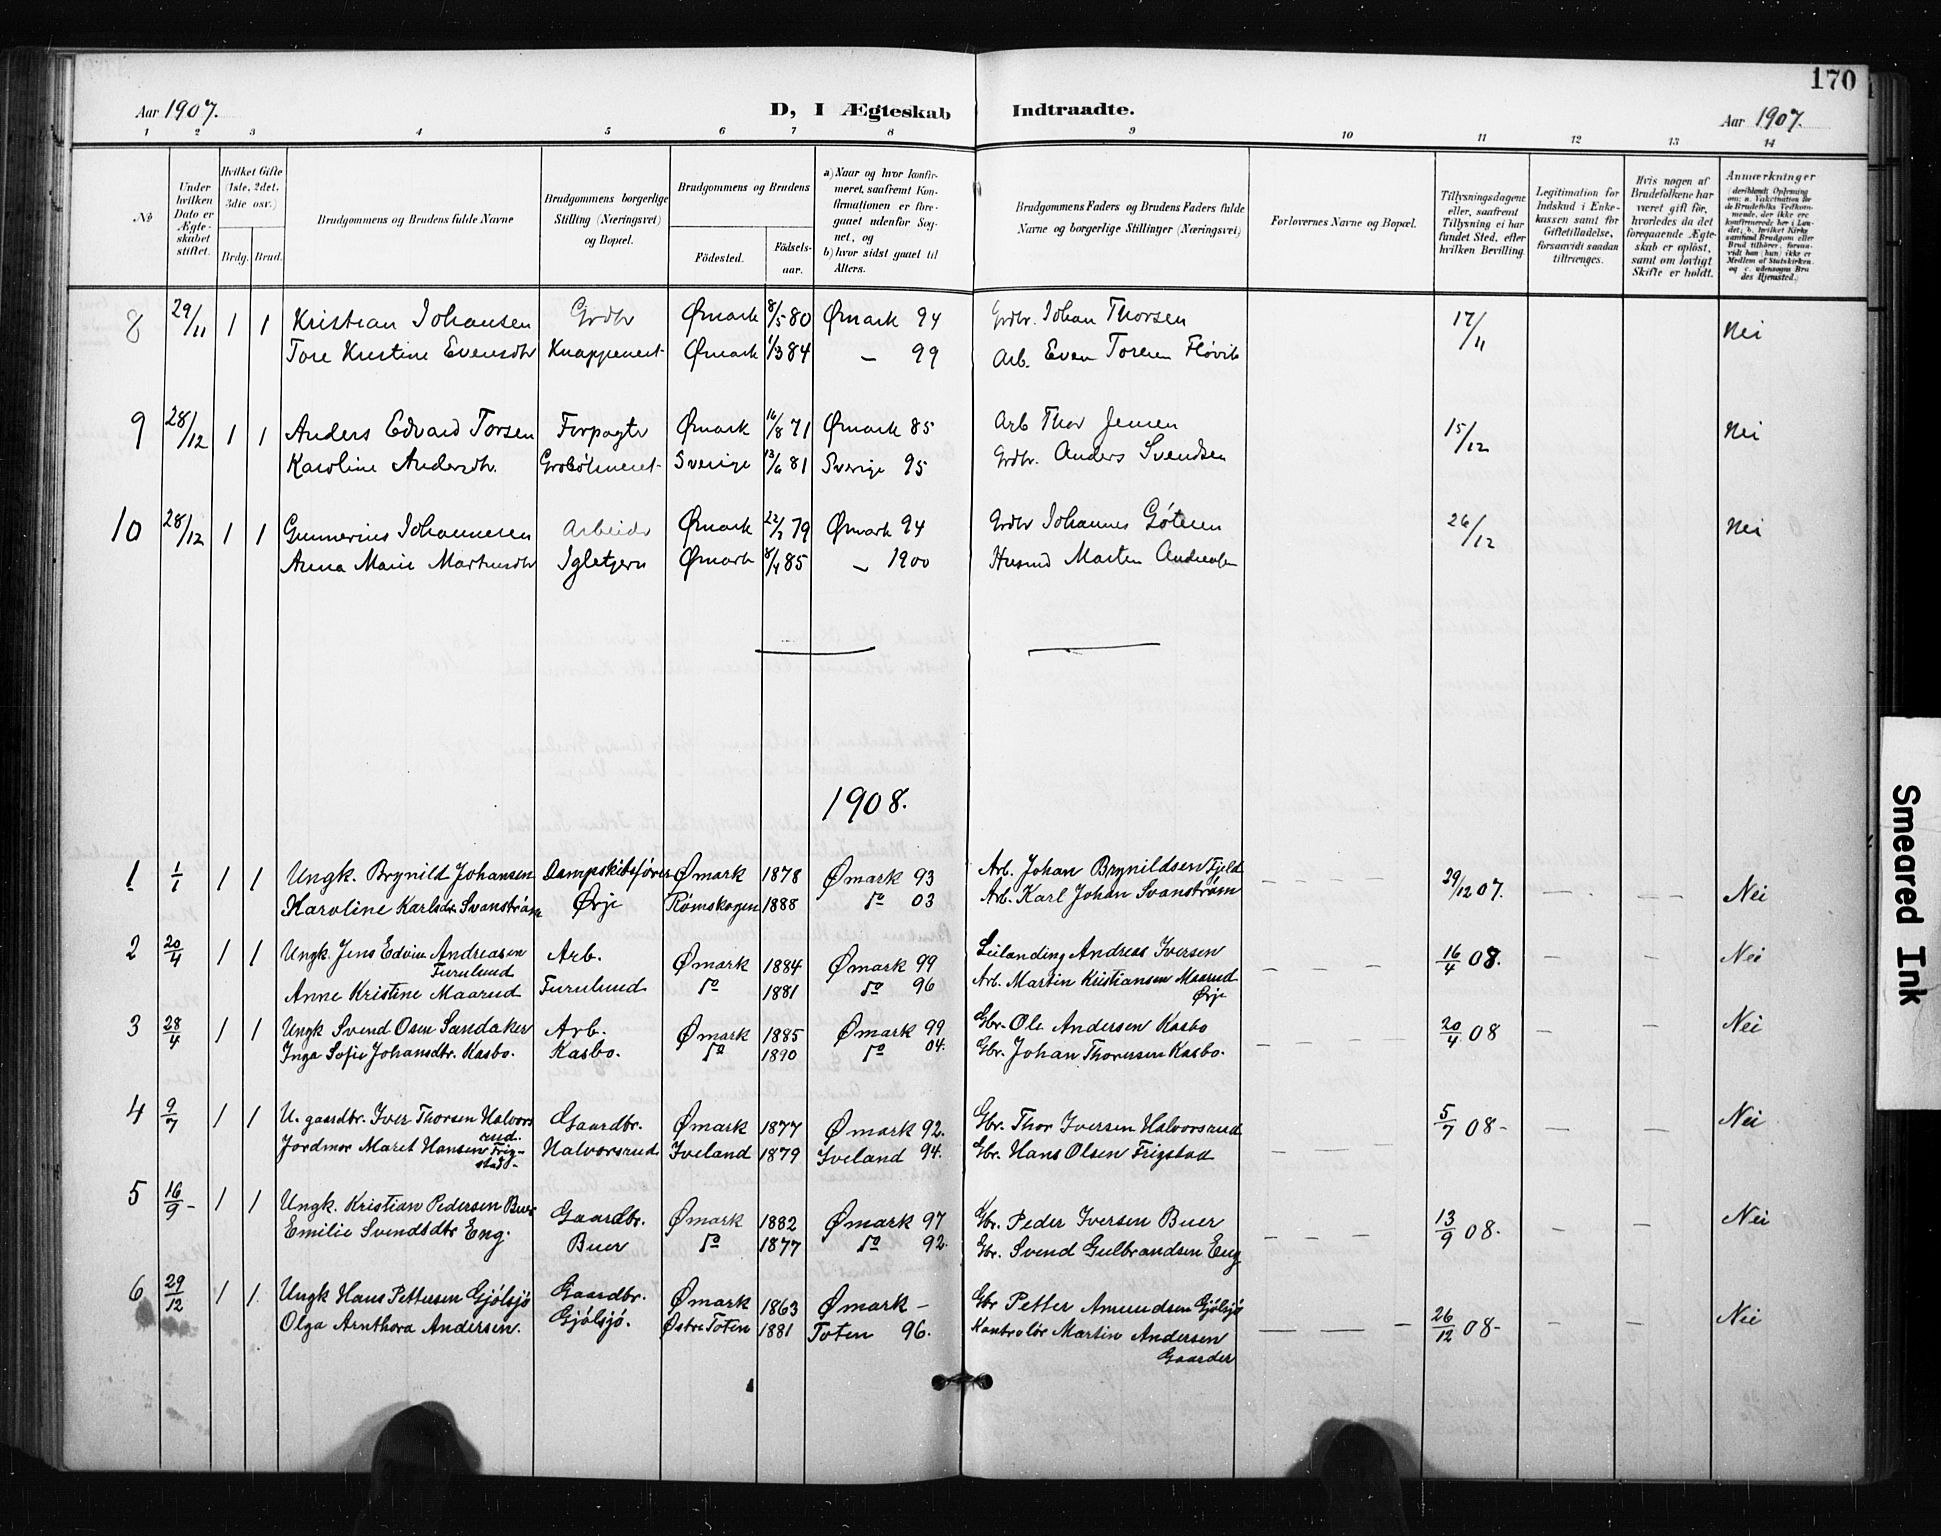 170
Aar 1907.
D, I Ægteskab Indtraadte.
Aar 1907.
1 2 3 4 5 6 7 8 9 10 11 12 13 14
No
Under hvilken Dato er Ægteskabet stiftet.
Hvilket Gifte (1ste, 2det, 3die osv.)
Brdg. Brud.
Brudgommens og Brudens fulde Navne
Brudgommens borgerlige Stilling (Næringsvei) og Bopæl.
Brudgommens og Brudens
Födested.
Fødselsaar.
a) Naar og hvor konfirmeret, saafremt Konfirmationen er foregaaet udenfor Sognet, og
b) hvor sidst gaaet til Alters.
Brudgommens Faders og Brudens Faders fulde Navne og borgerlige Stillinger (Næringsvei)
Forlovernes Navne og Bopæl.
Tillysningsdagene eller, saafremt Tillysning ei har fundet Sted, efter hvilken Bevilling.
Legitimation for Indskud i Enkekassen samt for Giftetilladelse, forsaavidt saadan tiltrænges.
Hvis nogen af Brudefolkene har været gift før, hvorledes da det foregaaende Ægteskab er opløst, samt om lovligt Skifte er holdt.
Anmærkninger
8 29/11 1 1 Kristian Johansen Grdbr Ømark 8/5 80 Ømark 94 Grdbr. Johan Thorsen 17/11 Nei
Tore Kristine Evensdtr Ømark 1/3 84 — 99 Arb. Even Torsen
9 28/12 1 1 Anders Edvard Torsen Forpagter Ømark 16/8 71 Ømark 85 Arb Thor Jensen 15/12 Nei
Karoline Andersdtr. Sverige 13/6 81 Sverige 95 Grdbr. Anders Svendsen
10 28/12 1 1 Gunnerius Johannesen Arbeider Ømark 22/2 79 Ømark 94 Grdbr Johannes 26/12 Nei
Anna Marie Martinsdtr Igletjern Ømark 8/4 85 — 1900 Husmd Martin Andreasen
1908.
1 1/1 1 1 Ungk. Brynild Johansen Dampskibsfører Ømark 1878 Ømark 93 Arb. Johan Brynildsen Fjeld — — — 29/12 07. — — — Nei
Karoline Karlsdr. Svanstrøm Ørje Rømskogen 1888 do 03 Arb. Karl Johan Svanstrøm
2 20/4 1 1 Ungk. Jens Edvin Andreasen Arb. Ømark 1884 Ømark 99 Leilænding Andreas Iversen — — — 16/4 08. — — Nei
Furulund
Anne Kristine Maarud Furulund do 1881 do 96 Arb. Martin Kristiansen Maarud
Ørje
3 28/4 1 1 Ungk Svend Osen Sandaker Arb. Ømark 1885 Ømark 99 Gbr. Ole Andersen Kasbo — — — — 20/4 08 — — Nei
Inga Sofie Johansdtr. Kasbo. Kasbo. do 1890 do 04. Gbr. Johan Thoresen Kasbo.
4 9/7 1 1 U. gaardbr. Iver Thorsen Halvors Gaardbr. Ømark 1877 Ømark 92. Gbr. Thor Iversen Halvorsrud — — — 5/7 08- — — Nei
rud.
Jordmor Maret Hansen Frig- Halvorsrud Iveland 1879 Iveland 94. Gbr. Hans Olsen Frigstad
stad-
5 16/9- 1 1 Ungk. Kristian Pedersen Buer Gaardbr. Ømark 1882 Ømark 97 Gbr. Peder Iversen Buer — — — 13/9 08. — — Nei
Emilie Svendsdtr Eng. Buer do 1877 do 92. Gbr. Svend Gulbrandsen Eng
6 29/12 1 1 Ungk Hans Pettersen Gjølsjø Gaardbr. Ømark 1863 Ømark — Gbr Petter Amundsen Gjølsjø — — — 26/12 08- — — Nei
Olga Arnthora Andersen. Gjølsjø. Østre Toten 1881 Toten 96. Kontrolør Martin Andersen
Gaarder
Smeared Ink